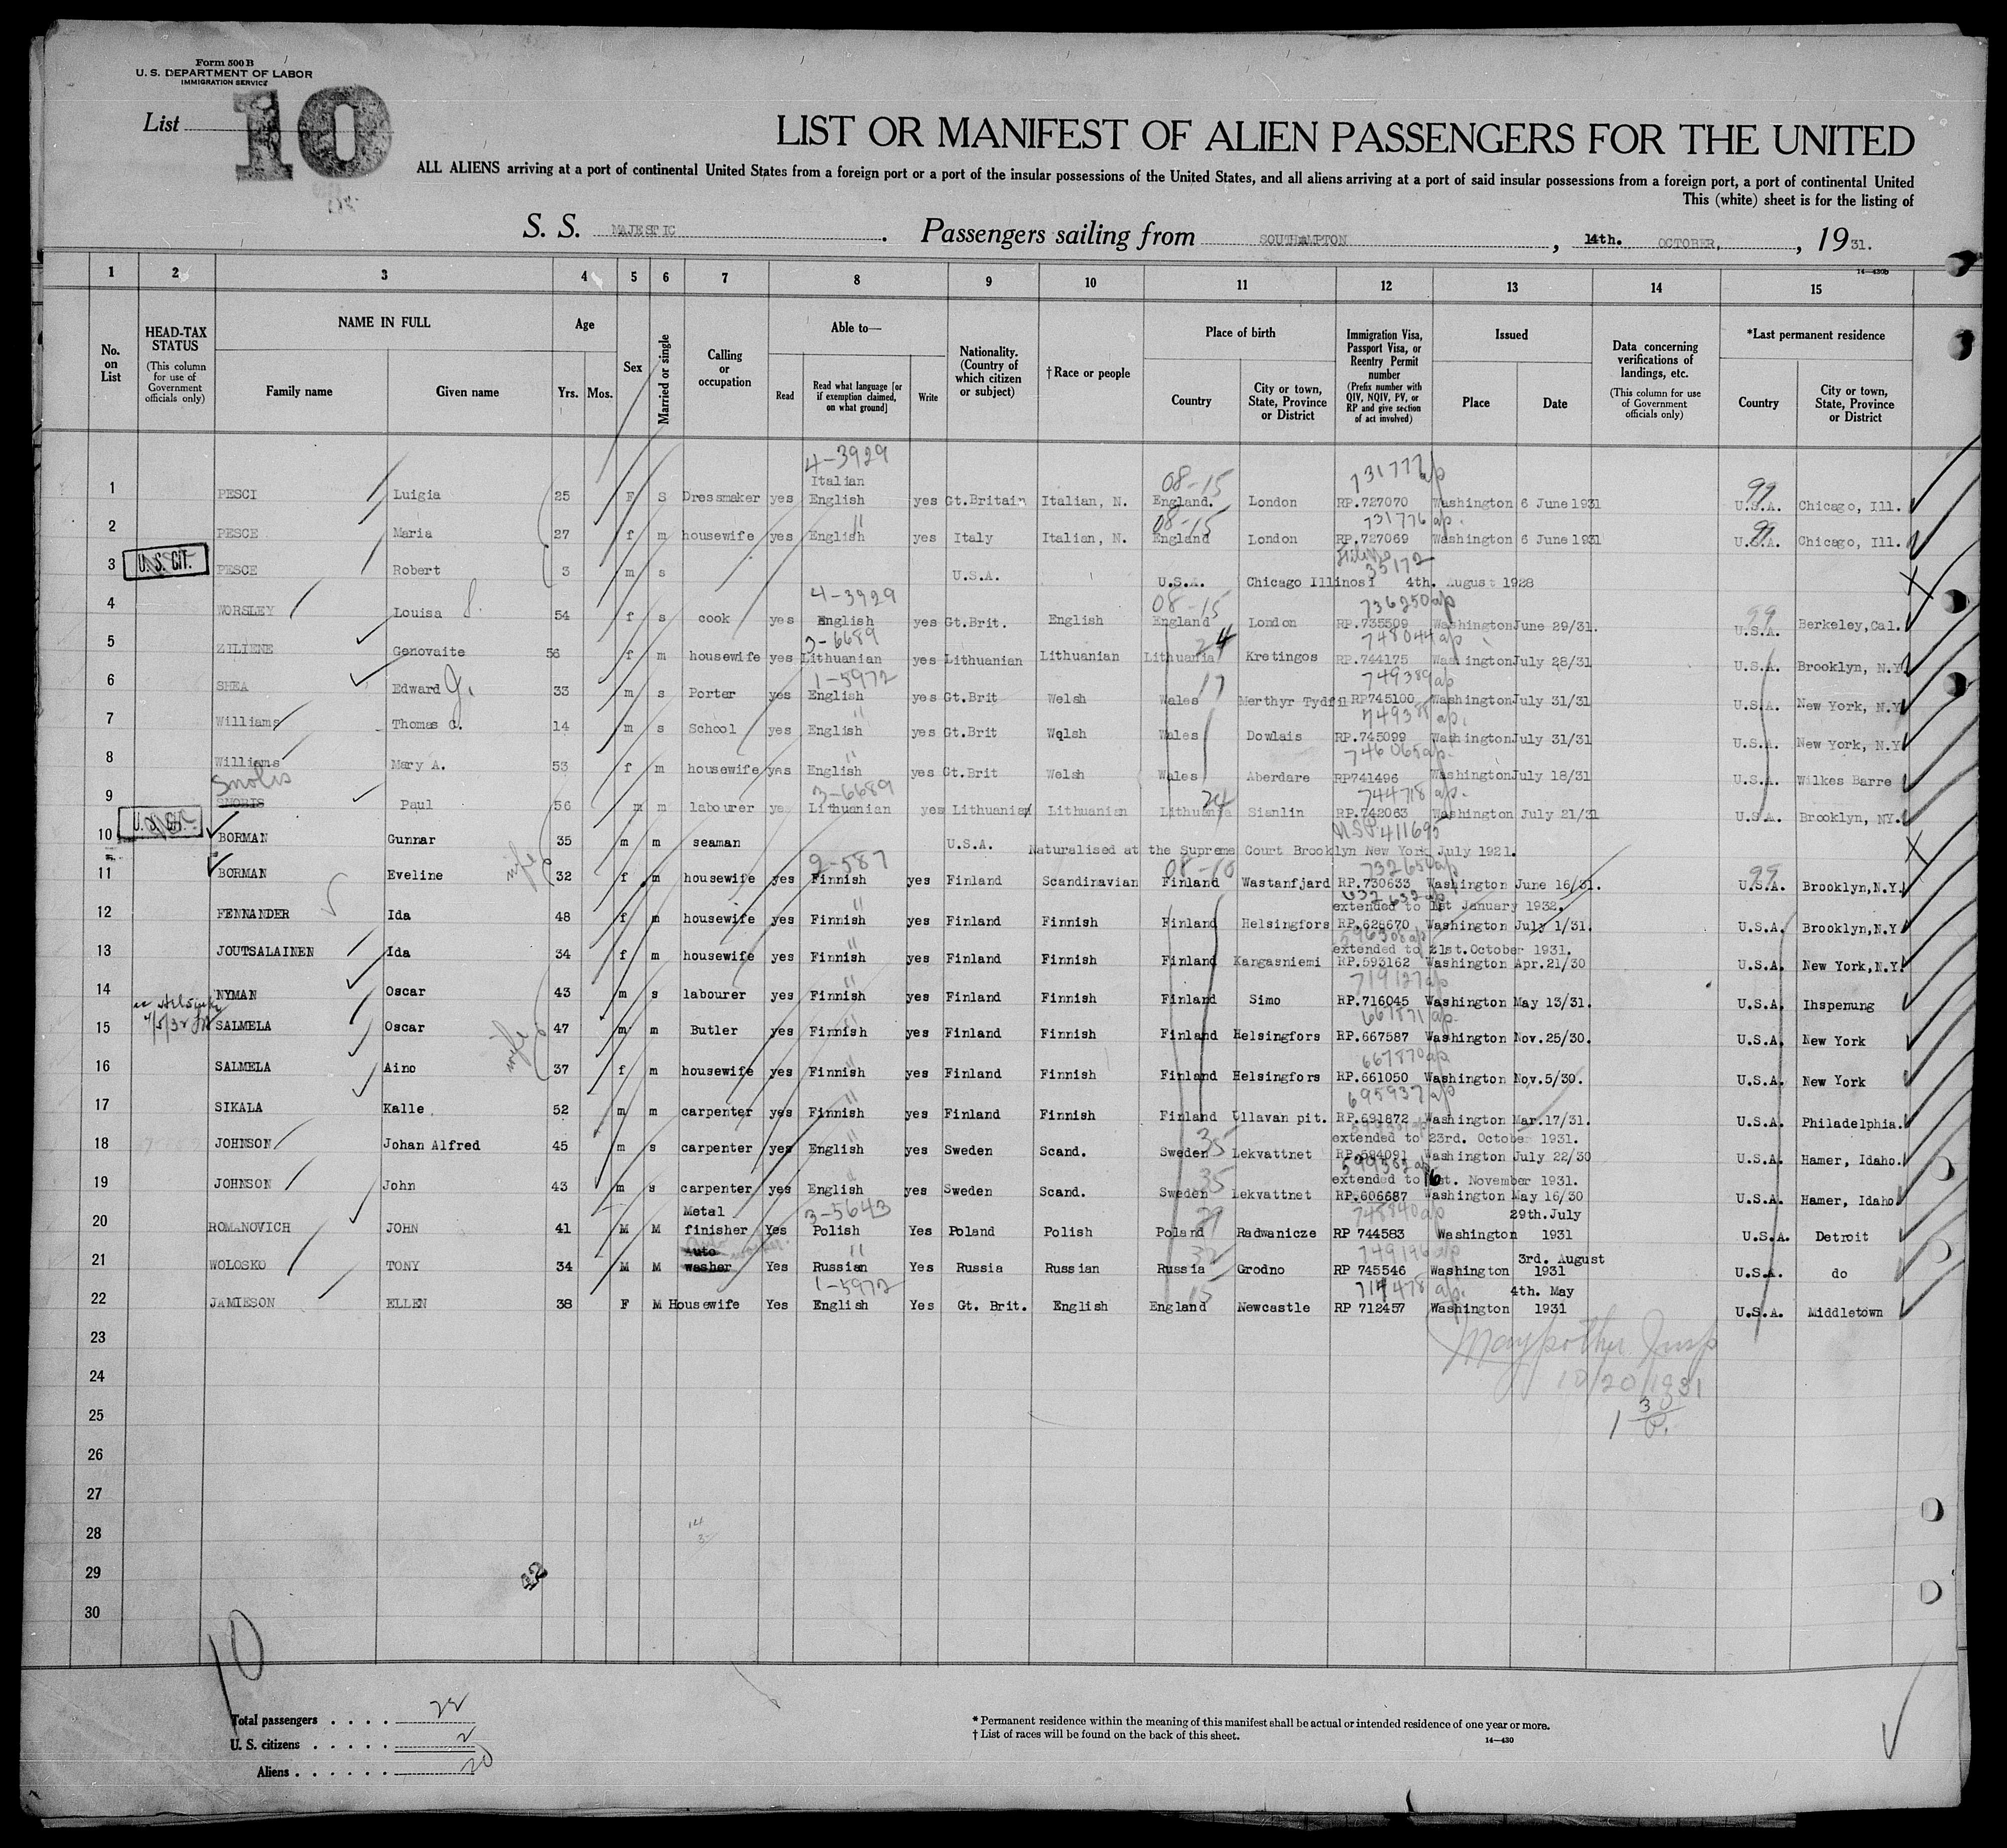 Form 500 B
U. S. DEPARTMENT OF LABOR
IMMIGRATION SERVICE
List 10
LIST OR MANIFEST OF ALIEN PASSENGERS FOR THE UNITED
ALL ALIENS arriving at a port of continental United States from a foreign port or a port of the insular possessions of the United States, and all aliens arriving at a port of said insular possessions from a foreign port, a port of continental United
This (white) sheet is for the listing of
S. S. MAJESTIC. Passengers sailing from SOUTHAMPTON, 14th. OCTOBER, 1931.
14—430b
1 2 3 4 5 6 7 8 9 10 11 12 13 14 15
No. on List
HEAD-TAX STATUS (This column for use of Government officials only)
NAME IN FULL
Family name Given name
Age
Yrs. Mos.
Sex
Married or single
Calling or occupation
Able to—
Read Read what language [or if exemption claimed, on what ground] Write
Nationality. (Country of which citizen or subject)
†Race or people
Place of birth
Country City or town, State, Province or District
Immigration Visa, Passport Visa, or Reentry Permit number (Prefix number with QIV, NQIV, PV, or RP and give section of act involved)
Issued
Place Date
Data concerning verifications of landings, etc. (This column for use of Government officials only)
*Last permanent residence
Country City or town, State, Province or District
4-3929 08-15 731777 a/p 99
1 PESCI Luigia 25 F S Dressmaker yes Italian English yes Gt.Britain Italian, N. England. London RP.727070 Washington 6 June 1931 U.S.A. Chicago, Ill.
" 08-15 731776 a/p. 99
2 PESCE Maria 27 f m housewife yes English yes Italy Italian, N. England London RP.727069 Washington 6 June 1931 U.S.A. Chicago, Ill.
35172
3 U.S. CIT. PESCE Robert 3 m s U.S.A. U.S.A. Chicago Illinosi 4th. August 1928
4-3929 08-15 736250 a/p 99
4 WORSLEY Louisa J. 54 f s cook yes English yes Gt.Brit. English England London RP.735509 Washington June 29/31. U.S.A. Berkeley,Cal.
3-6689 24 748044 a/p
5 ZILIENE Genovaite 56 f m housewife yes Lithuanian yes Lithuanian Lithuanian Lithuania Kretingos RP.744175 Washington July 28/31 U.S.A. Brooklyn, N.Y.
1-5972 17 749389 a/p
6 SHEA Edward J. 33 m s Porter yes English yes Gt.Brit Welsh Wales Merthyr Tydfil RP745100 Washington July 31/31 U.S.A. New York, N.Y.
" 749388 a/p.
7 Williams Thomas G. 14 m s School yes English yes Gt.Brit Wqlsh Wales Dowlais RP.745099 Washington July 31/31 U.S.A. New York, N.Y.
" 746065 a/p.
8 Williams Mary A. 53 f m housewife yes English yes Gt.Brit Welsh Wales Aberdare RP741496 Washington July 18/31 U.S.A. Wilkes Barre
Snolis 3-6689 24 744718 a/p.
9 SNORIS Paul 56 m m labourer yes Lithuanian yes Lithuanian Lithuanian Lithuania Sianlin RP.742063 Washington July 21/31 U.S.A. Brooklyn, NY.
USP 411695
10 U.S. CIT. BORMAN Gunnar 35 m m seaman U.S.A. Naturalised at the Supreme Court Brooklyn New York July 1921.
wife 2-587 08-10 732654 a/p 99
11 BORMAN Eveline 32 f m housewife yes Finnish yes Finland Scandinavian Finland Wastanfjard RP.730633 Washington June 16/31. U.S.A. Brooklyn,N.Y.
" 632632 a/p extended to 1st January 1932.
12 FENNANDER Ida 48 f m housewife yes Finnish yes Finland Finnish Finland Helsingfors RP.628670 Washington July 1/31. U.S.A. Brooklyn,N.Y
" 596308 a/p extended to 21st.October 1931.
13 JOUTSALAINEN Ida 34 f m housewife yes Finnish yes Finland Finnish Finland Kangasniemi RP.593162 Washington Apr.21/30 U.S.A. New York,N.Y.
" 719127 a/p
14 NYMAN Oscar 43 m s labourer yes Finnish yes Finland Finnish Finland Simo RP.716045 Washington May 13/31. U.S.A. Ihspenung
" 667871 a/p.
15 SALMELA Oscar 47 m m Butler yes Finnish yes Finland Finnish Finland Helsingfors RP.667587 Washington Nov.25/30. U.S.A. New York
wife " 667870 a/p
16 SALMELA Aino 37 f m housewife yes Finnish yes Finland Finnish Finland Helsingfors RP.661050 Washington Nov.5/30. U.S.A. New York
" 695937 a/p
17 SIKALA Kalle 52 m m carpenter yes Finnish yes Finland Finnish Finland Ullavan pit. RP.691872 Washington Mar.17/31. U.S.A. Philadelphia.
" 35 extended to 23rd. October 1931.
18 JOHNSON Johan Alfred 45 m s carpenter yes English yes Sweden Scand. Sweden Lekvattnet RP.594091 Washington July 22/30 U.S.A. Hamer, Idaho.
35 599562 a/p extended to 16st. November 1931.
19 JOHNSON John 43 m s carpenter yes English yes Sweden Scand. Sweden Lekvattnet RP.606687 Washington May 16/30 U.S.A. Hamer, Idaho
3-5643 748840 a/p
20 ROMANOVICH JOHN 41 M M Metal finisher Yes Polish Yes Poland Polish Poland Radwanicze RP 744583 Washington 29th.July 1931 U.S.A. Detroit
" 32 749196 a/p
21 WOLOSKO TONY 34 M M Auto washer Yes Russian Yes Russia Russian Russia Grodno RP 745546 Washington 3rd. August 1931 U.S.A. do
1-5972 15 714478 a/p.
22 JAMIESON ELLEN 38 F M Housewife Yes English Yes Gt. Brit. English England Newcastle RP 712457 Washington 4th. May 1931 U.S.A. Middletown
23
24
10/20/1931
25
26
27
28
29
30
10
Total passengers . . . . 22
U. S. citizens . . . . . 2
Aliens . . . . . . 20
* Permanent residence within the meaning of this manifest shall be actual or intended residence of one year or more.
† List of races will be found on the back of this sheet.
14—430